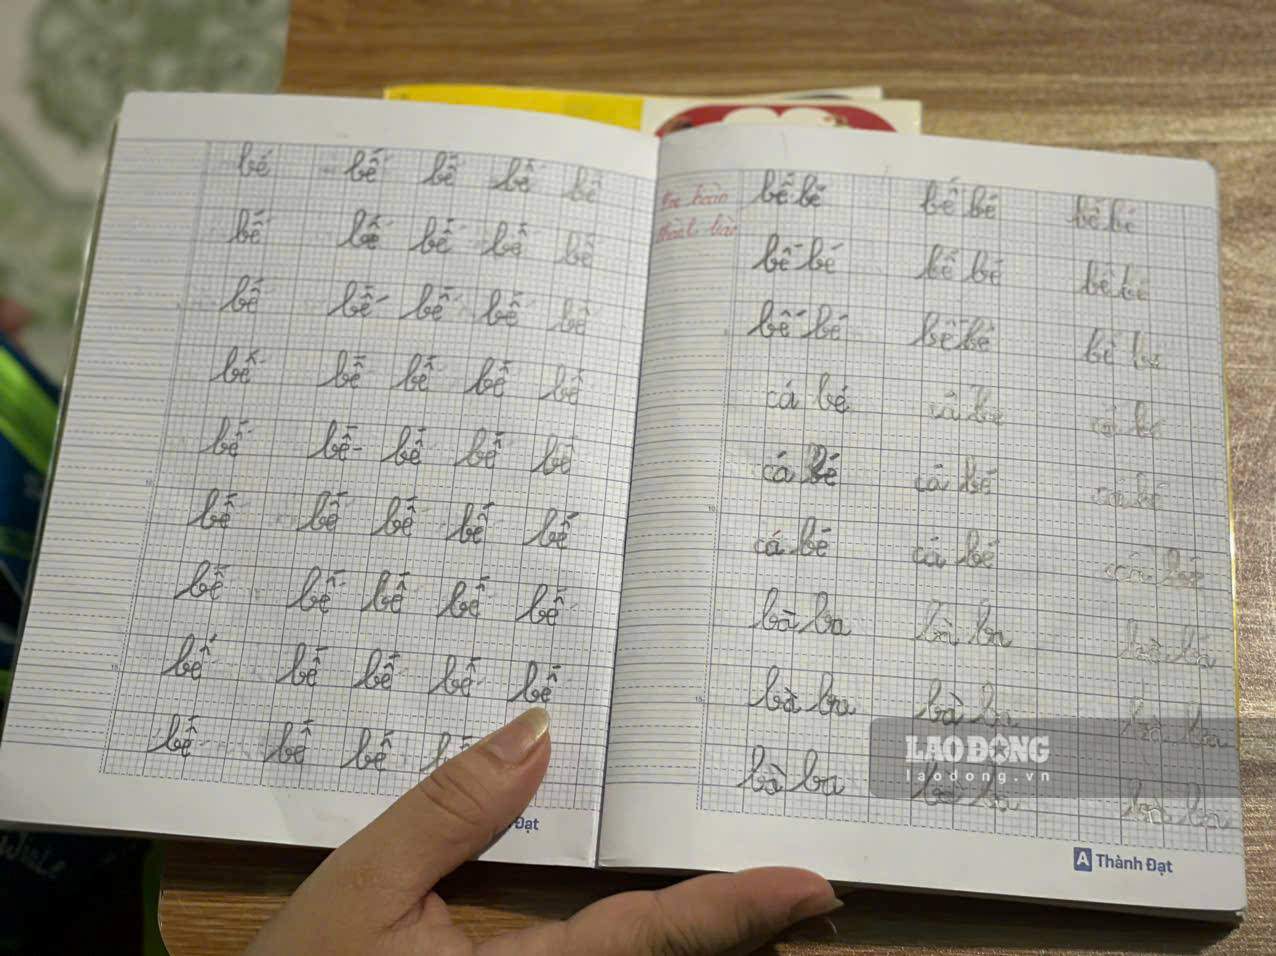 bé bế bế bế bế
bế bế bế bế bế
bế bế bế bế bế
bế bế bế bế bế
bế bế bế bế bế
bế bế bế bế bế
bế bế bế bế bế
bế bế bế bế bế
bế bế bế
Đạt
hoàn
bế bé bế bé bế bé
bế bé bế bé bế bé
bế bé bế bé bế bé
cá bé cá bé cá bé
cá bé cá bé cá bé
cá bé cá bé cá bé
bà ba bà ba bà ba
bà ba bà ba bà ba
bà ba bà ba bà ba
LAO ĐỘNG
laodong.vn
A Thành Đạt